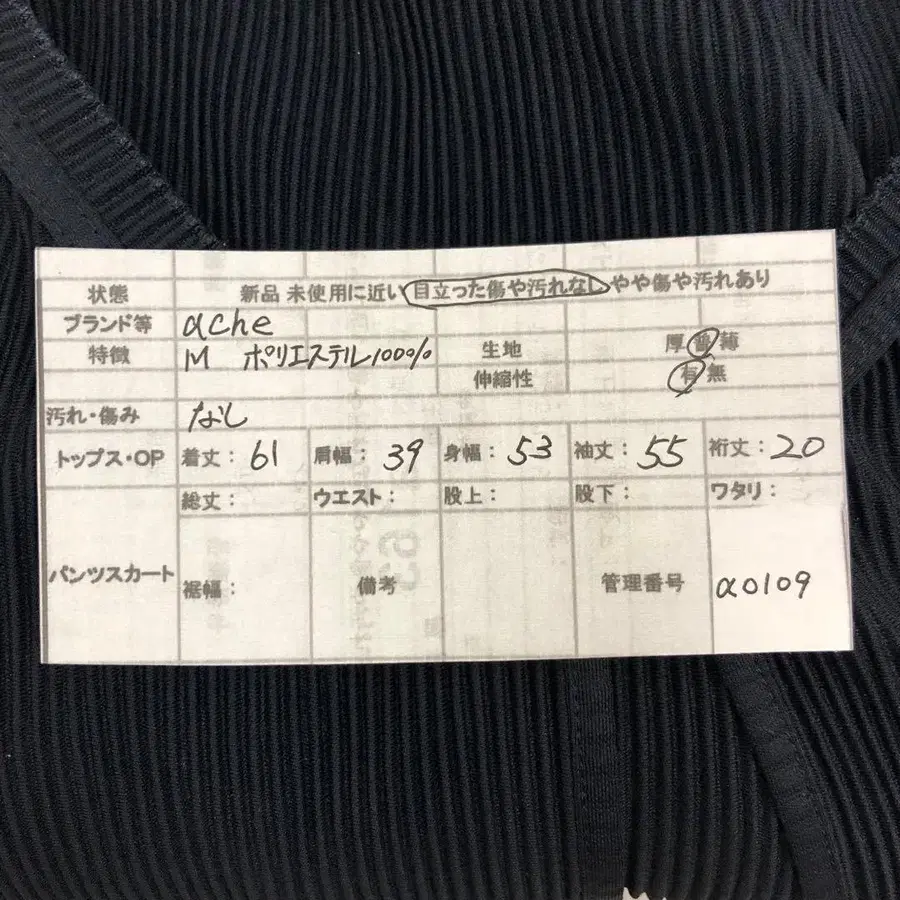 状態 新品 未使用に近い 目立った傷や汚れなし やや傷や汚れあり
ブランド等 ache
特徴 M ポリエステル100% 生地 厚 普 薄
伸縮性 有 無
汚れ・傷み なし
トップス・OP 着丈: 61 肩幅: 39 身幅: 53 袖丈: 55 裄丈: 20
総丈: ウエスト: 股上: 股下: ワタリ:
パンツスカート 裾幅: 備考 管理番号 α0109